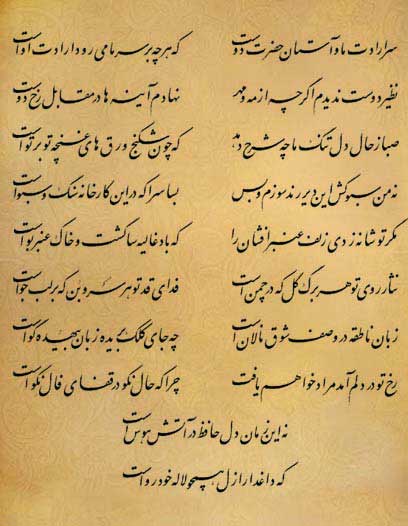 سر ارادت ما و آستان حضرت دوست که هر چه بر سر ما می رود ارادت اوست
نظیر دوست ندیدم اگر چه از مه و مهر نهادم آینه ها در مقابل رخ دوست
صبا ز حال دل تنگ ما چه شرح دهد که چون شکنج ورق های غنچه تو بر توست
نه من سبوکش این دیر رند سوزم و بس بسا سرا که در این کارخانه سنگ و سبوست
مگر تو شانه زدی زلف عنبر افشان را که باد غالیه سا گشت و خاک عنبر بوست
نثار روی تو هر برگ گل که در چمن است فدای قد تو هر سرو بن که بر لب جوست
زبان ناطقه در وصف شوق نالان است چه جای کلک بریده زبان بیهده گوست
رخ تو در دلم آمد مراد خواهم یافت چرا که حال نکو در قفای فال نکوست
نه این زمان دل حافظ در آتش هوس است
که داغدار ازل همچو لاله خودروست